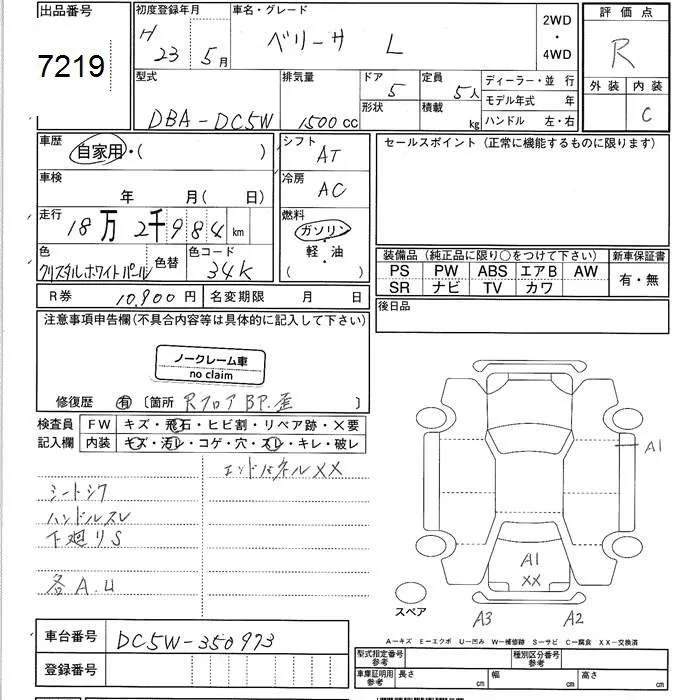 出品番号
7219
初度登録年月
H
23 5月
車名・グレード
ベリーサ L
2WD
・
4WD
評価点
R
外装 内装
C
型式
DBA-DC5W
排気量
1500cc
ドア
5
形状
定員
5人
積載
kg
ディーラー・並 行
モデル年式 年
ハンドル 左・右
車歴
自家用・( )
シフト
AT
セールスポイント (正常に機能するものに限ります)
車検
年 月( 日)
冷房
AC
走行
18万2千984km
燃料
ガソリン
軽・油
( )
色
クリスタルホワイトパール
色替
色コード
34K
装備品 (純正品に限り○をつけて下さい)
新車保証書
PS PW ABS エアB AW
有・無
SR ナビ TV カワ
R券 10,900円 名変期限 月 日
後日品
注意事項申告欄(不具合内容等は具体的に記入して下さい)
ノークレーム車
no claim
修復歴 有 〔箇所 Rフロア BP.歪 〕
検査員
記入欄
FW キズ・飛石・ヒビ割・リペア跡・×要
内装 キズ・汚レ・コゲ・穴・スレ・キレ・破レ
エンドパネルXX
シートシワ
ハンドルスレ
下廻りS
各A.U
A1
A1
XX
A3 A2
スペア
A-キズ E-エクボ U-凹み W-補修跡 S-サビ C-腐食 XX-交換済
車台番号 DC5W-350973
登録番号
型式指定番号
参考
種別区分番号
参考
車庫証明用
参考
長さ cm 幅 cm 高さ cm